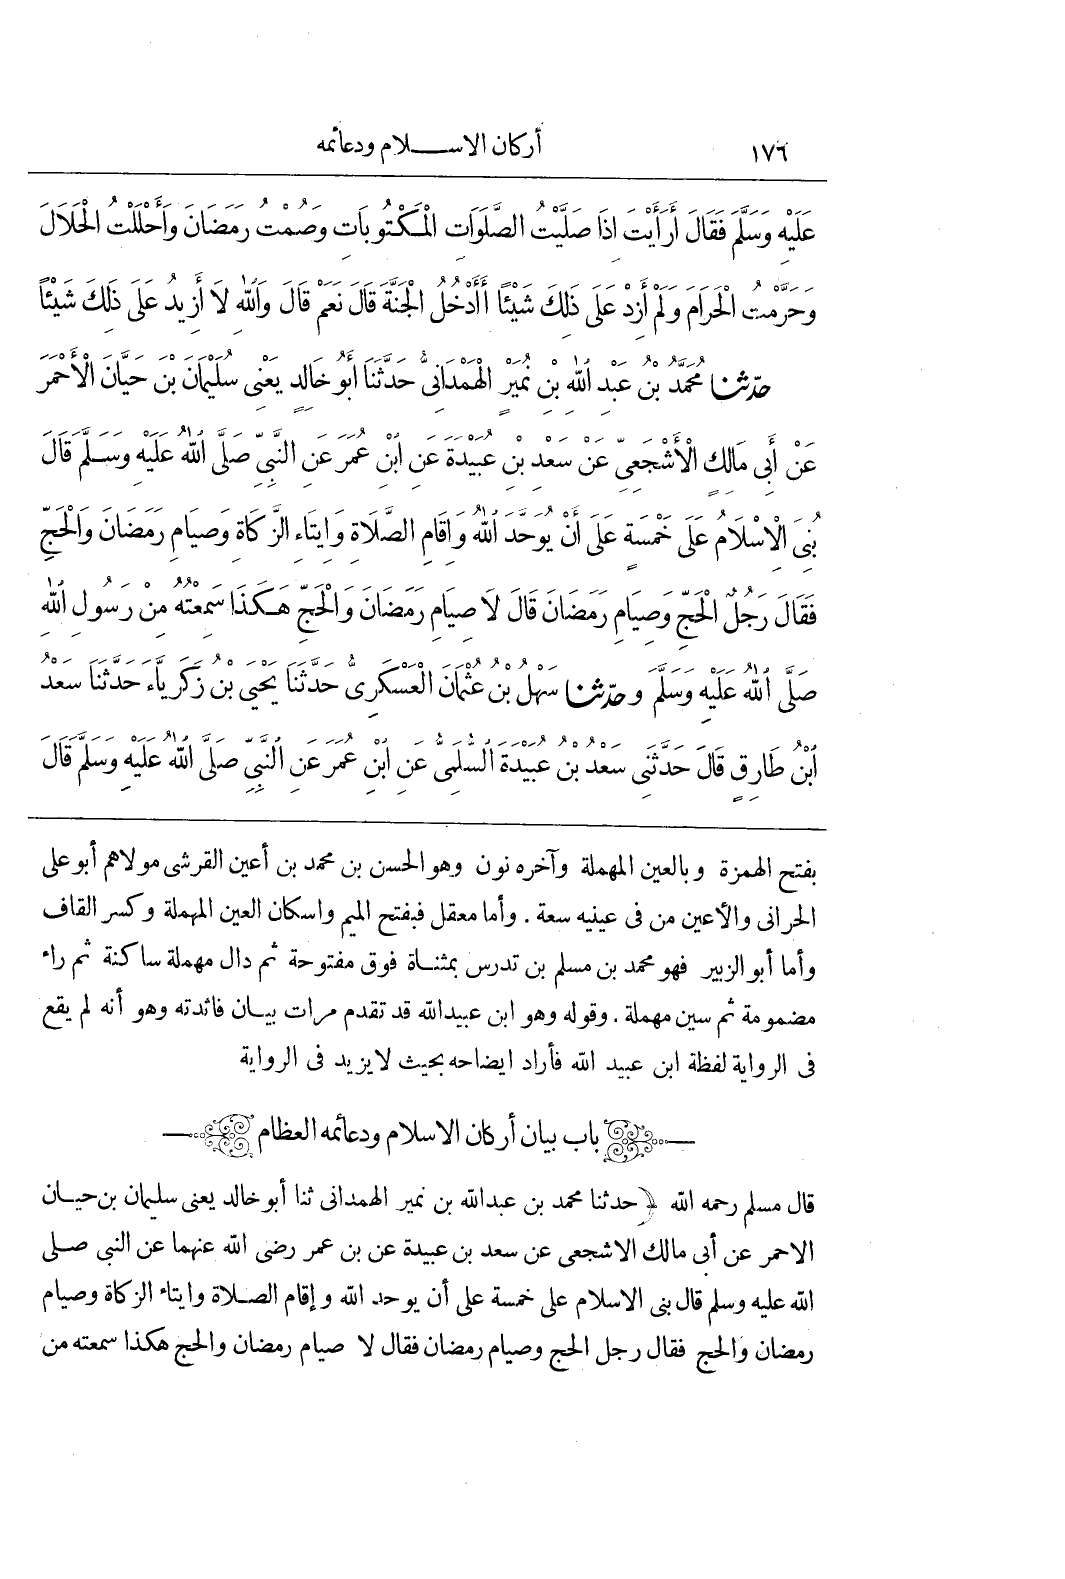 ١٧٦ أركان الاسلام ودعائمه
عَلَيْهِ وَسَلَّمَ فَقَالَ أَرَأَيْتَ اذَا صَلَّيْتُ الصَّلَوَاتِ الْمَكْتُوبَاتِ وَصُمْتُ رَمَضَانَ وَأَحْلَلْتُ الْحَلَالَ
وَحَرَّمْتُ الْحَرَامَ وَلَمْ أَزِدْ عَلَى ذَلِكَ شَيْئًا أَأَدْخُلُ الْجَنَّةَ قَالَ نَعَمْ قَالَ وَاللهِ لَا أَزِيدُ عَلَى ذَلِكَ شَيْئًا
حدّثنا مُحَمَّدُ بْنُ عَبْدِ اللهِ بْنِ نُمَيْرٍ الْهَمْدَانِىُّ حَدَّثَنَا أَبُو خَالِدٍ يَعْنِى سُلَيْمَانَ بْنَ حَيَّانَ الْأَحْمَرَ
عَنْ أَبِى مَالِكٍ الْأَشْجَعِىِّ عَنْ سَعْدِ بْنِ عُبَيْدَةَ عَنِ ابْنِ عُمَرَ عَنِ النَّبِىِّ صَلَّى اللهُ عَلَيْهِ وَسَلَّمَ قَالَ
بُنِىَ الْاِسْلَامُ عَلَى خَمْسَةٍ عَلَى أَنْ يُوَحَّدَ اللهُ وَاِقَامِ الصَّلَاةِ وَايتَاءِ الزَّكَاةِ وَصِيَامِ رَمَضَانَ وَالْحَجِّ
فَقَالَ رَجُلٌ الْحَجِّ وَصِيَامِ رَمَضَانَ قَالَ لَا صِيَامِ رَمَضَانَ وَالْحَجِّ هَكَذَا سَمِعْتُهُ مِنْ رَسُولِ اللهِ
صَلَّى اللهُ عَلَيْهِ وَسَلَّمَ وحدّثنا سَهْلُ بْنُ عُثْمَانَ الْعَسْكَرِىُّ حَدَّثَنَا يَحْيَى بْنُ زَكَرِيَّاءَ حَدَّثَنَا سَعْدُ
ابْنُ طَارِقٍ قَالَ حَدَّثَنِى سَعْدُ بْنُ عُبَيْدَةَ السُّلَمِىُّ عَنِ ابْنِ عُمَرَ عَنِ النَّبِىِّ صَلَّى اللهُ عَلَيْهِ وَسَلَّمَ قَالَ
بفتح الهمزة وبالعين المهملة وآخره نون وهو الحسن بن محمد بن أعين القرشى مولاهم أبو على
الحرانى والأعين من فى عينيه سعة . وأما معقل فبفتح الميم واسكان العين المهملة وكسر القاف
وأما أبو الزبير فهو محمد بن مسلم بن تدرس بمثناة فوق مفتوحة ثم دال مهملة ساكنة ثم راء
مضمومة ثم سين مهملة . وقوله وهو ابن عبيدالله قد تقدم مرات بيان فائدته وهو أنه لم يقع
فى الرواية لفظة ابن عبيد الله فأراد ايضاحه بحيث لا يزيد فى الرواية
باب بيان أركان الاسلام ودعائمه العظام
قال مسلم رحمه الله ﴿ حدثنا محمد بن عبدالله بن نمير الهمدانى ثنا أبو خالد يعنى سليمان بن حيان
الاحمر عن أبى مالك الاشجعى عن سعد بن عبيدة عن بن عمر رضى الله عنهما عن النبى صلى
الله عليه وسلم قال بنى الاسلام على خمسة على أن يوحد الله وإقام الصلاة وايتاء الزكاة وصيام
رمضان والحج فقال رجل الحج وصيام رمضان فقال لا صيام رمضان والحج هكذا سمعته من